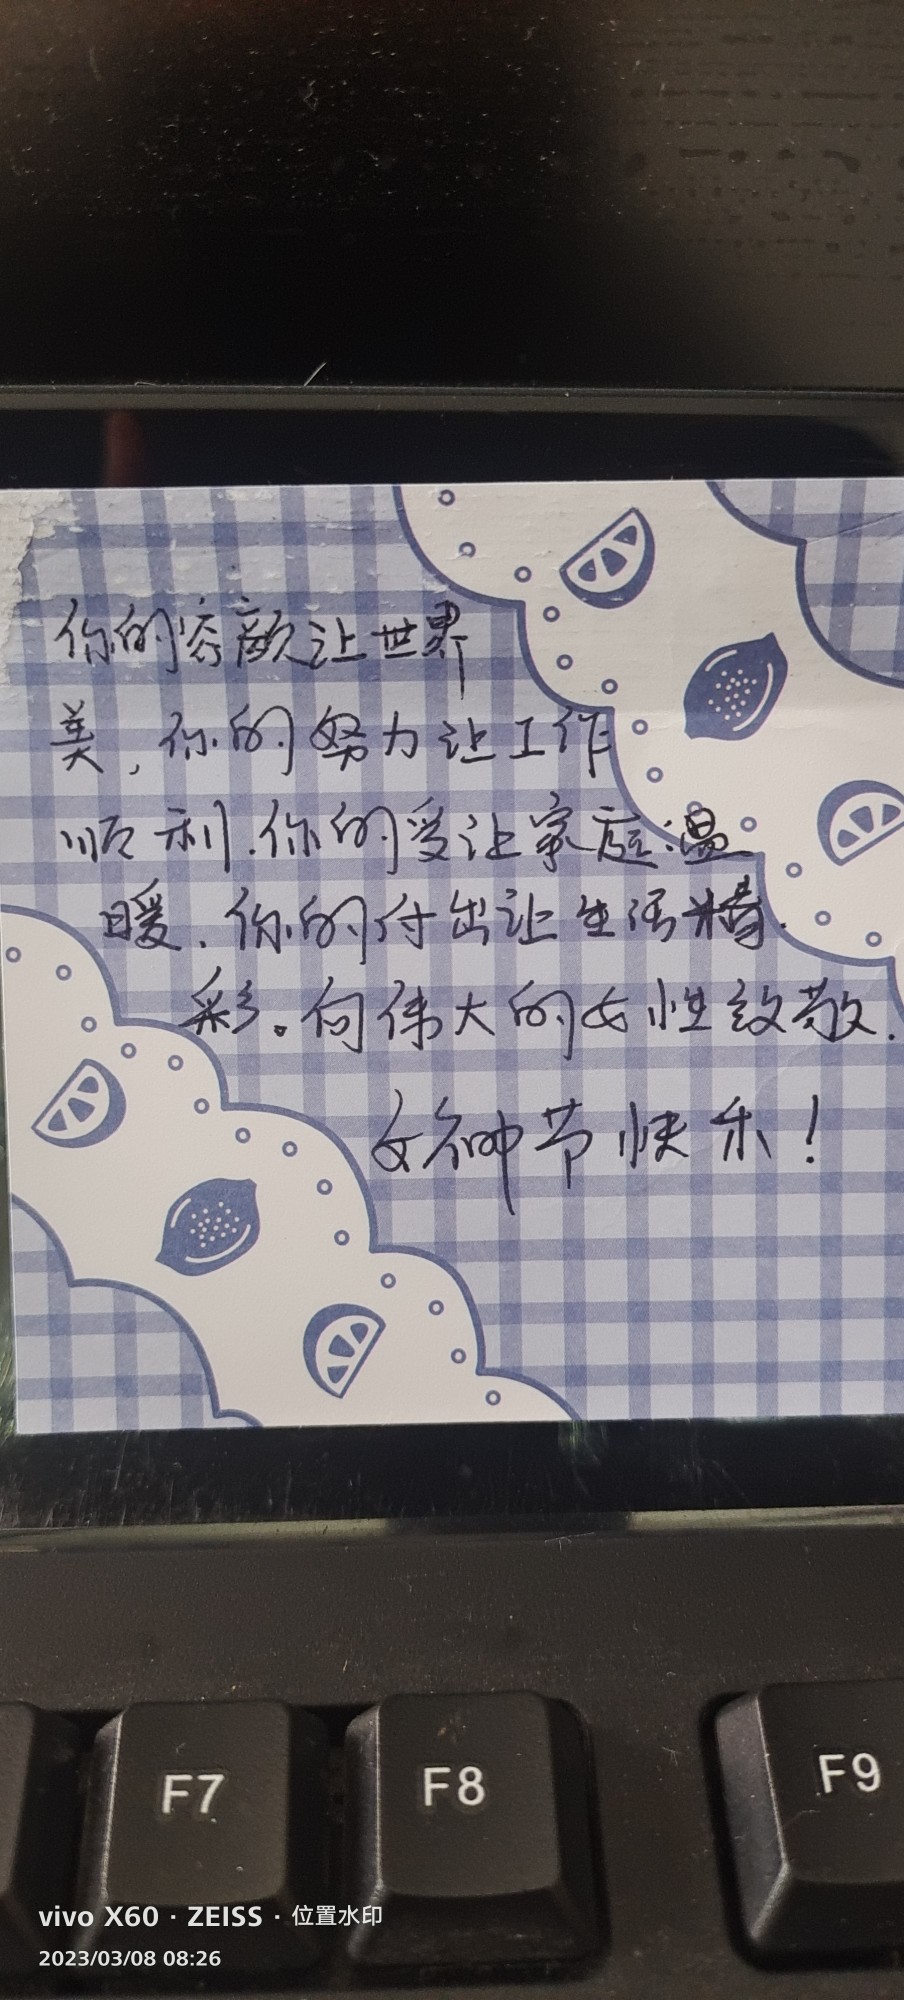 你的容颜让世界
美,你的努力让工作
顺利.你的爱让家庭温
暖.你的付出让生活精
彩。向伟大的女性致敬.
女神节快乐!
F7
F8
F9
vivo X60 · ZEISS · 位置水印
2023/03/08 08:26